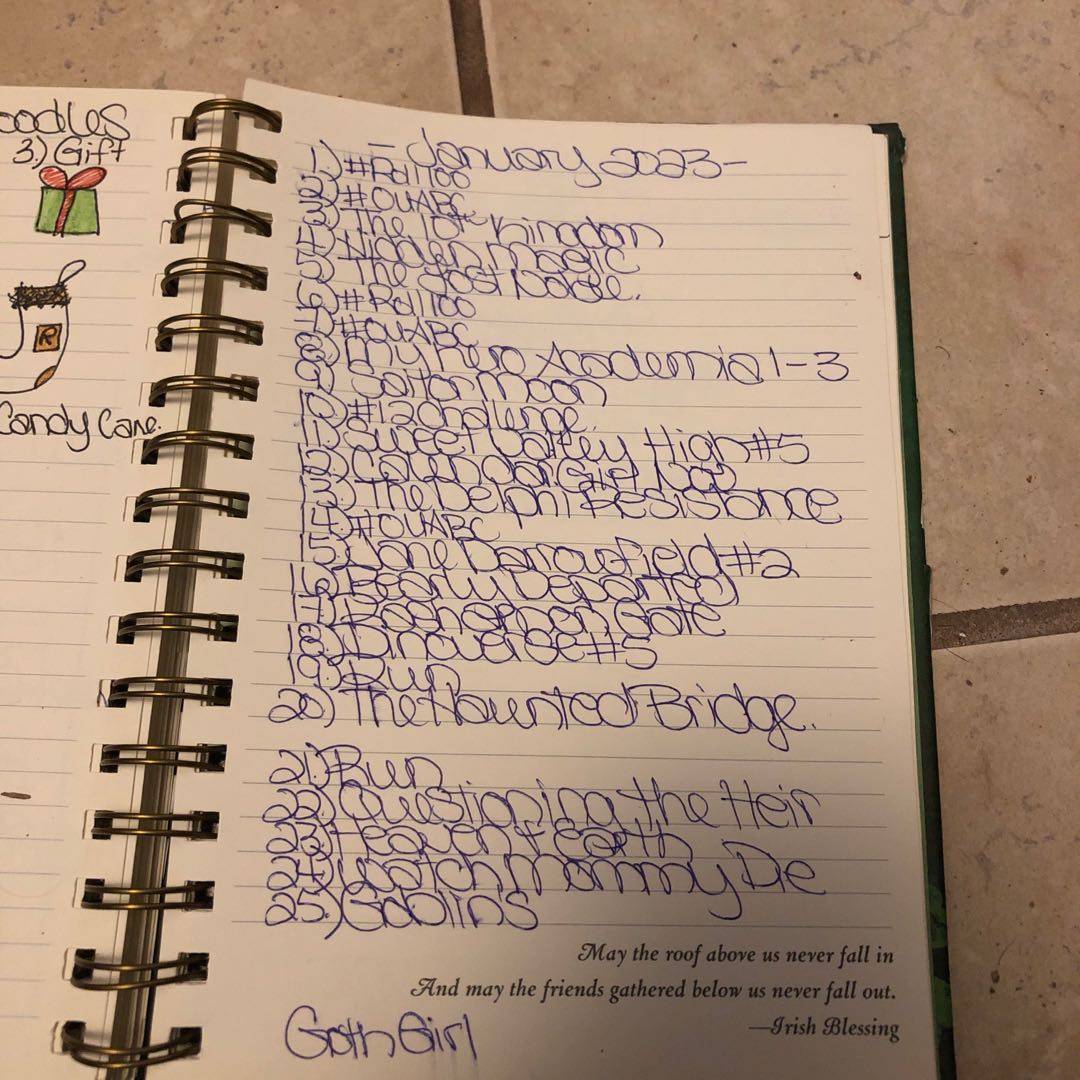 oodles
3.) Gift
R
Candy Cane.
- January 2023 -
1.) #Roll100
2.) #OUABC
3.) The Kingdom
4.) Hidden Magic
5.) The Lost
6.) #Roll100
7.) #OUABC
8.) My Hero Academia 1-3
9.) Sailor Moon
10.) #12challenge.
11.) Sweet Valley High #5
12.) Calendar Girl
13.) The Delphi Resistance
14.) #OUABC
15.) Jane #2
16.) Dearly Departed
17.) Gate
18.) Dinoverse #5
19.) Run
20.) The Haunted Bridge.
21.) Run
22.) Questioning the Heir
23.) Heaven + Earth
24.) Watch Mommy Die
25.) Goblins
May the roof above us never fall in
And may the friends gathered below us never fall out.
—Irish Blessing
Goth Girl